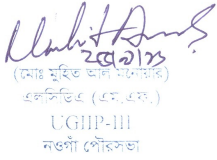 (মোঃ মুহিত আল মনোয়ার)
এলসিডিএ (এম.এফ.)
UGIIP-III
নওগাঁ পৌরসভা